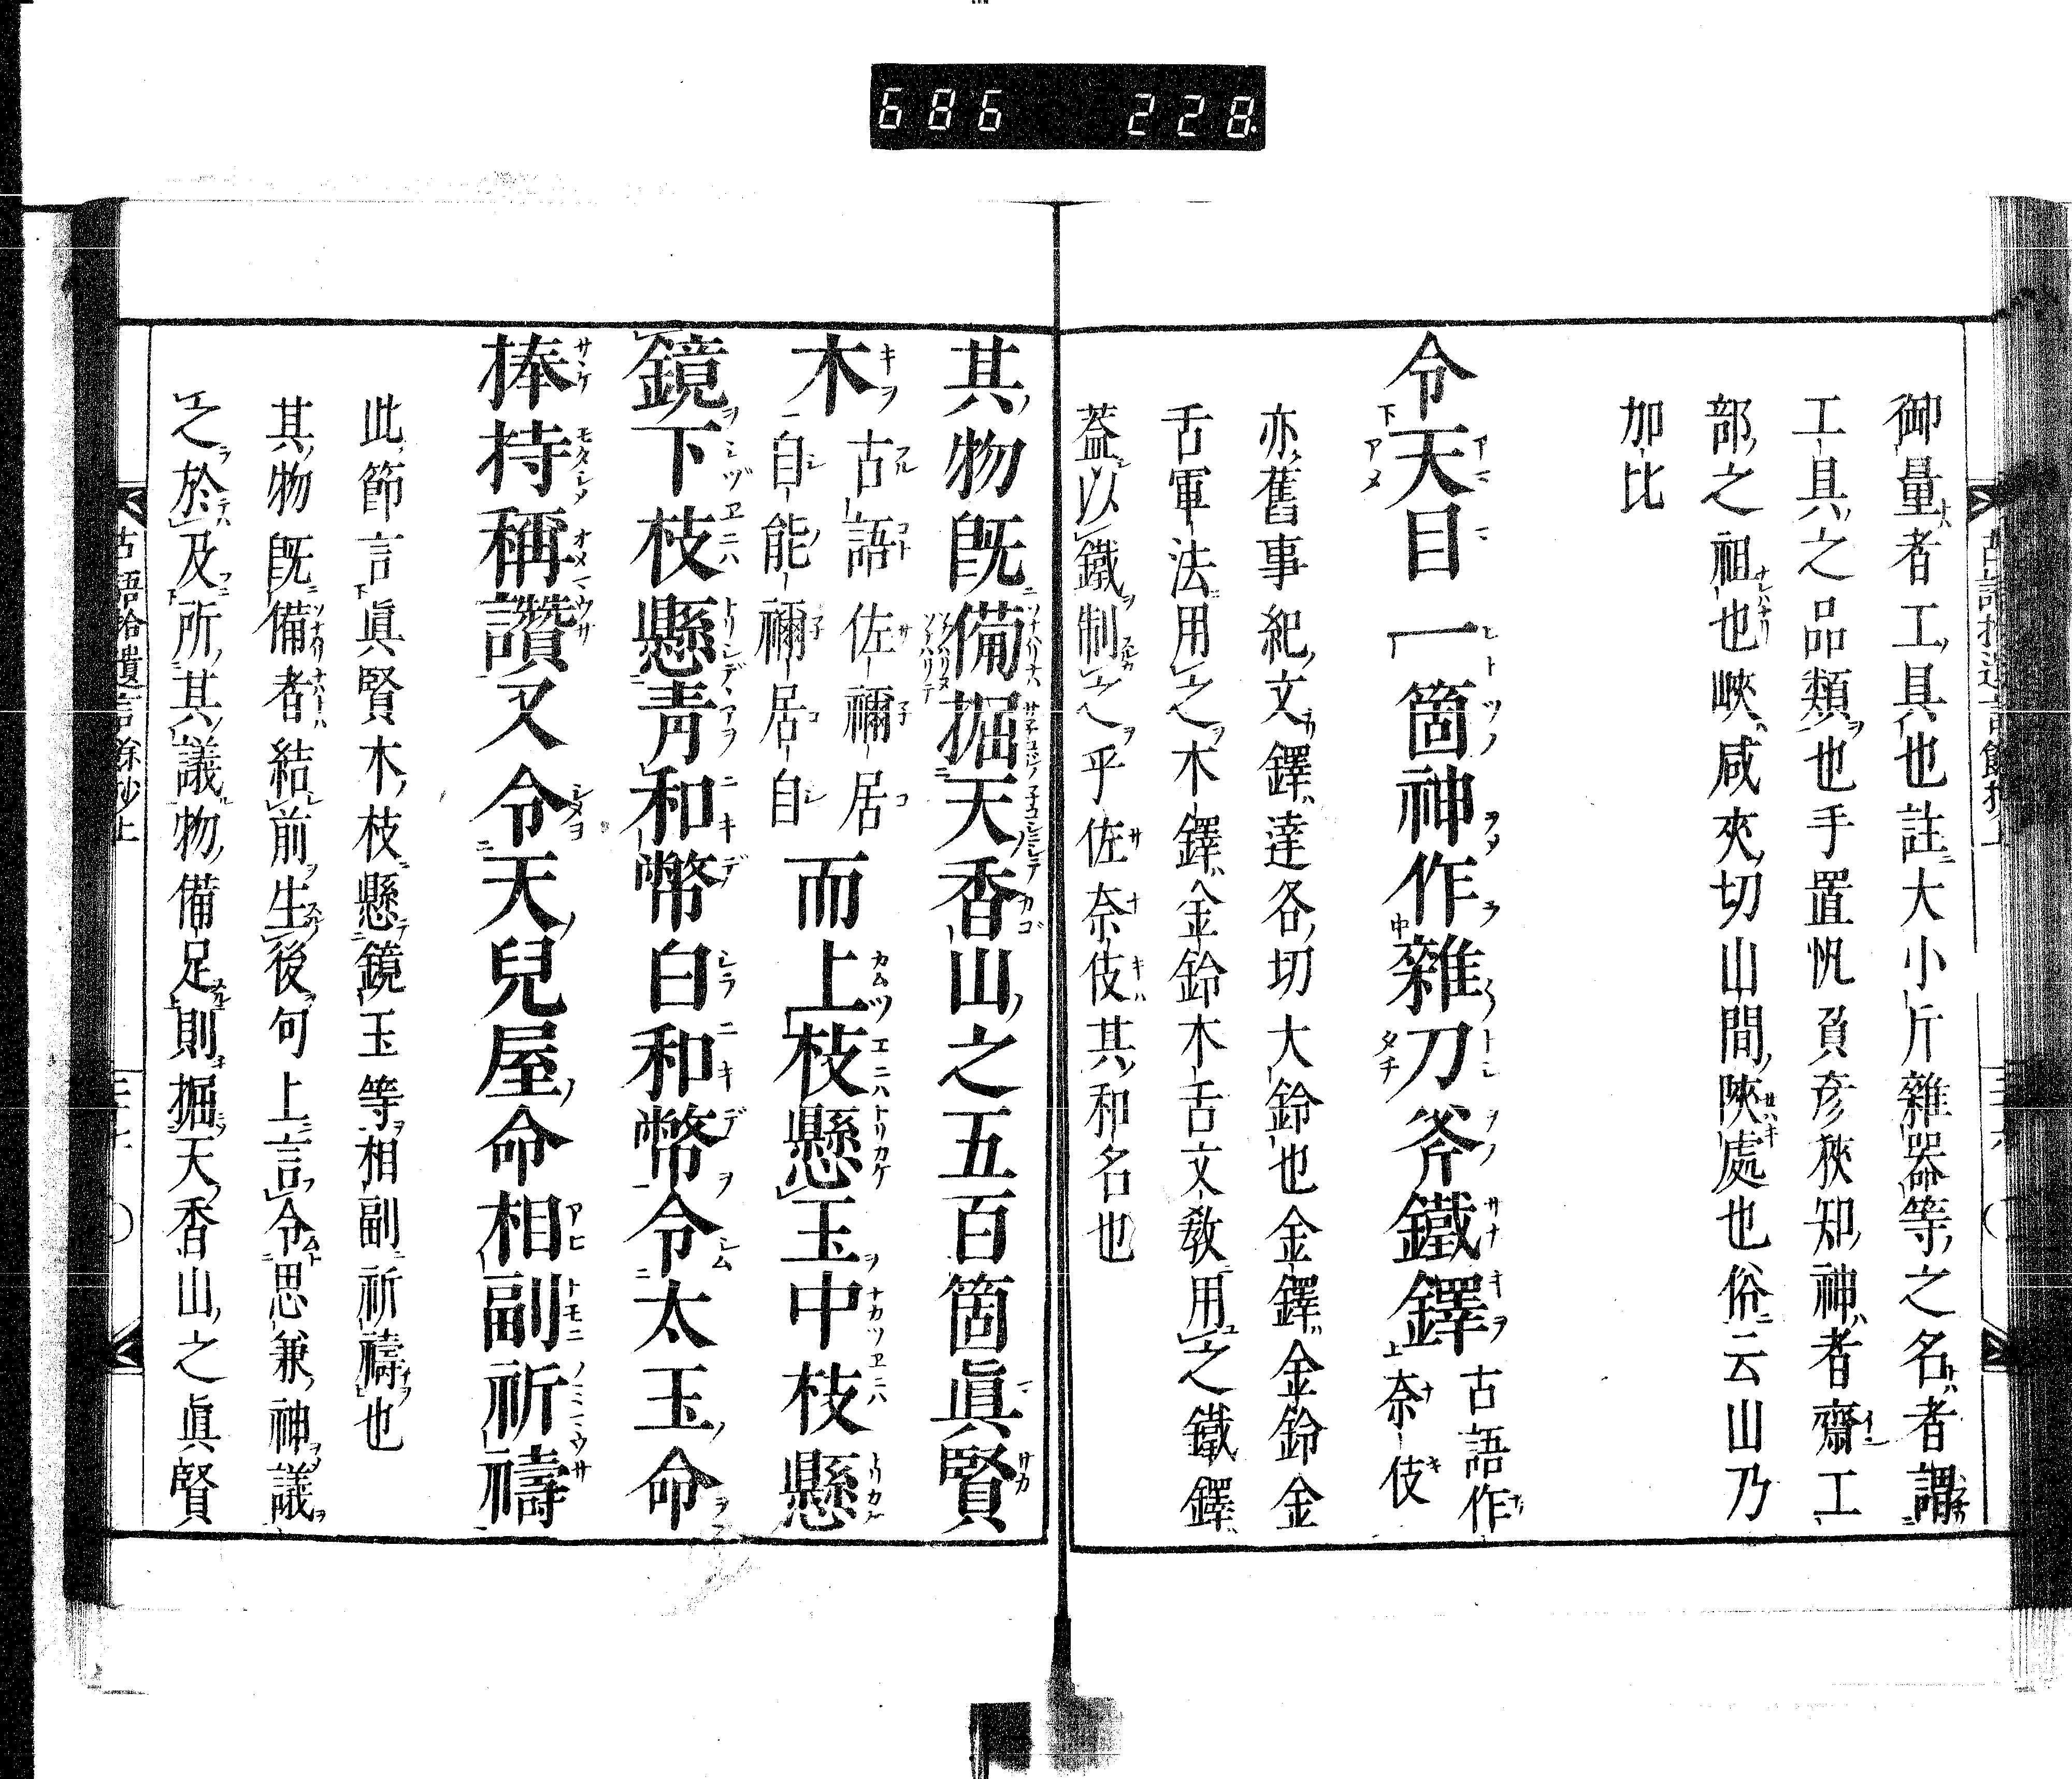 686 228
御量者工具也註大小斤雜器等之名者謂
工具之品類也手置帆負彦狹知神者齋工
部之祖也峽咸夾切山間陝處也俗云山乃
加比
令天目一箇神作雜刀斧鐵鐸古語作
奈伎
亦舊事紀文鐸達各切大鈴也金鐸金鈴金
舌軍法用之木鐸金鈴木舌文敎用之鐵鐸
蓋以鐵制之乎佐奈伎其和名也
其物既備掘天香山之五百箇眞賢
木古語佐禰居
自能禰居自而上枝懸玉中枝懸
鏡下枝懸靑和幣白和幣令太玉命
捧持稱讚又令天兒屋命相副祈禱
此節言眞賢木枝懸鏡玉等相副祈禱也
其物既備者結前生後句上言令思兼神議
之於及所其議物備足則掘天香山之眞賢
古語拾遺言餘抄上